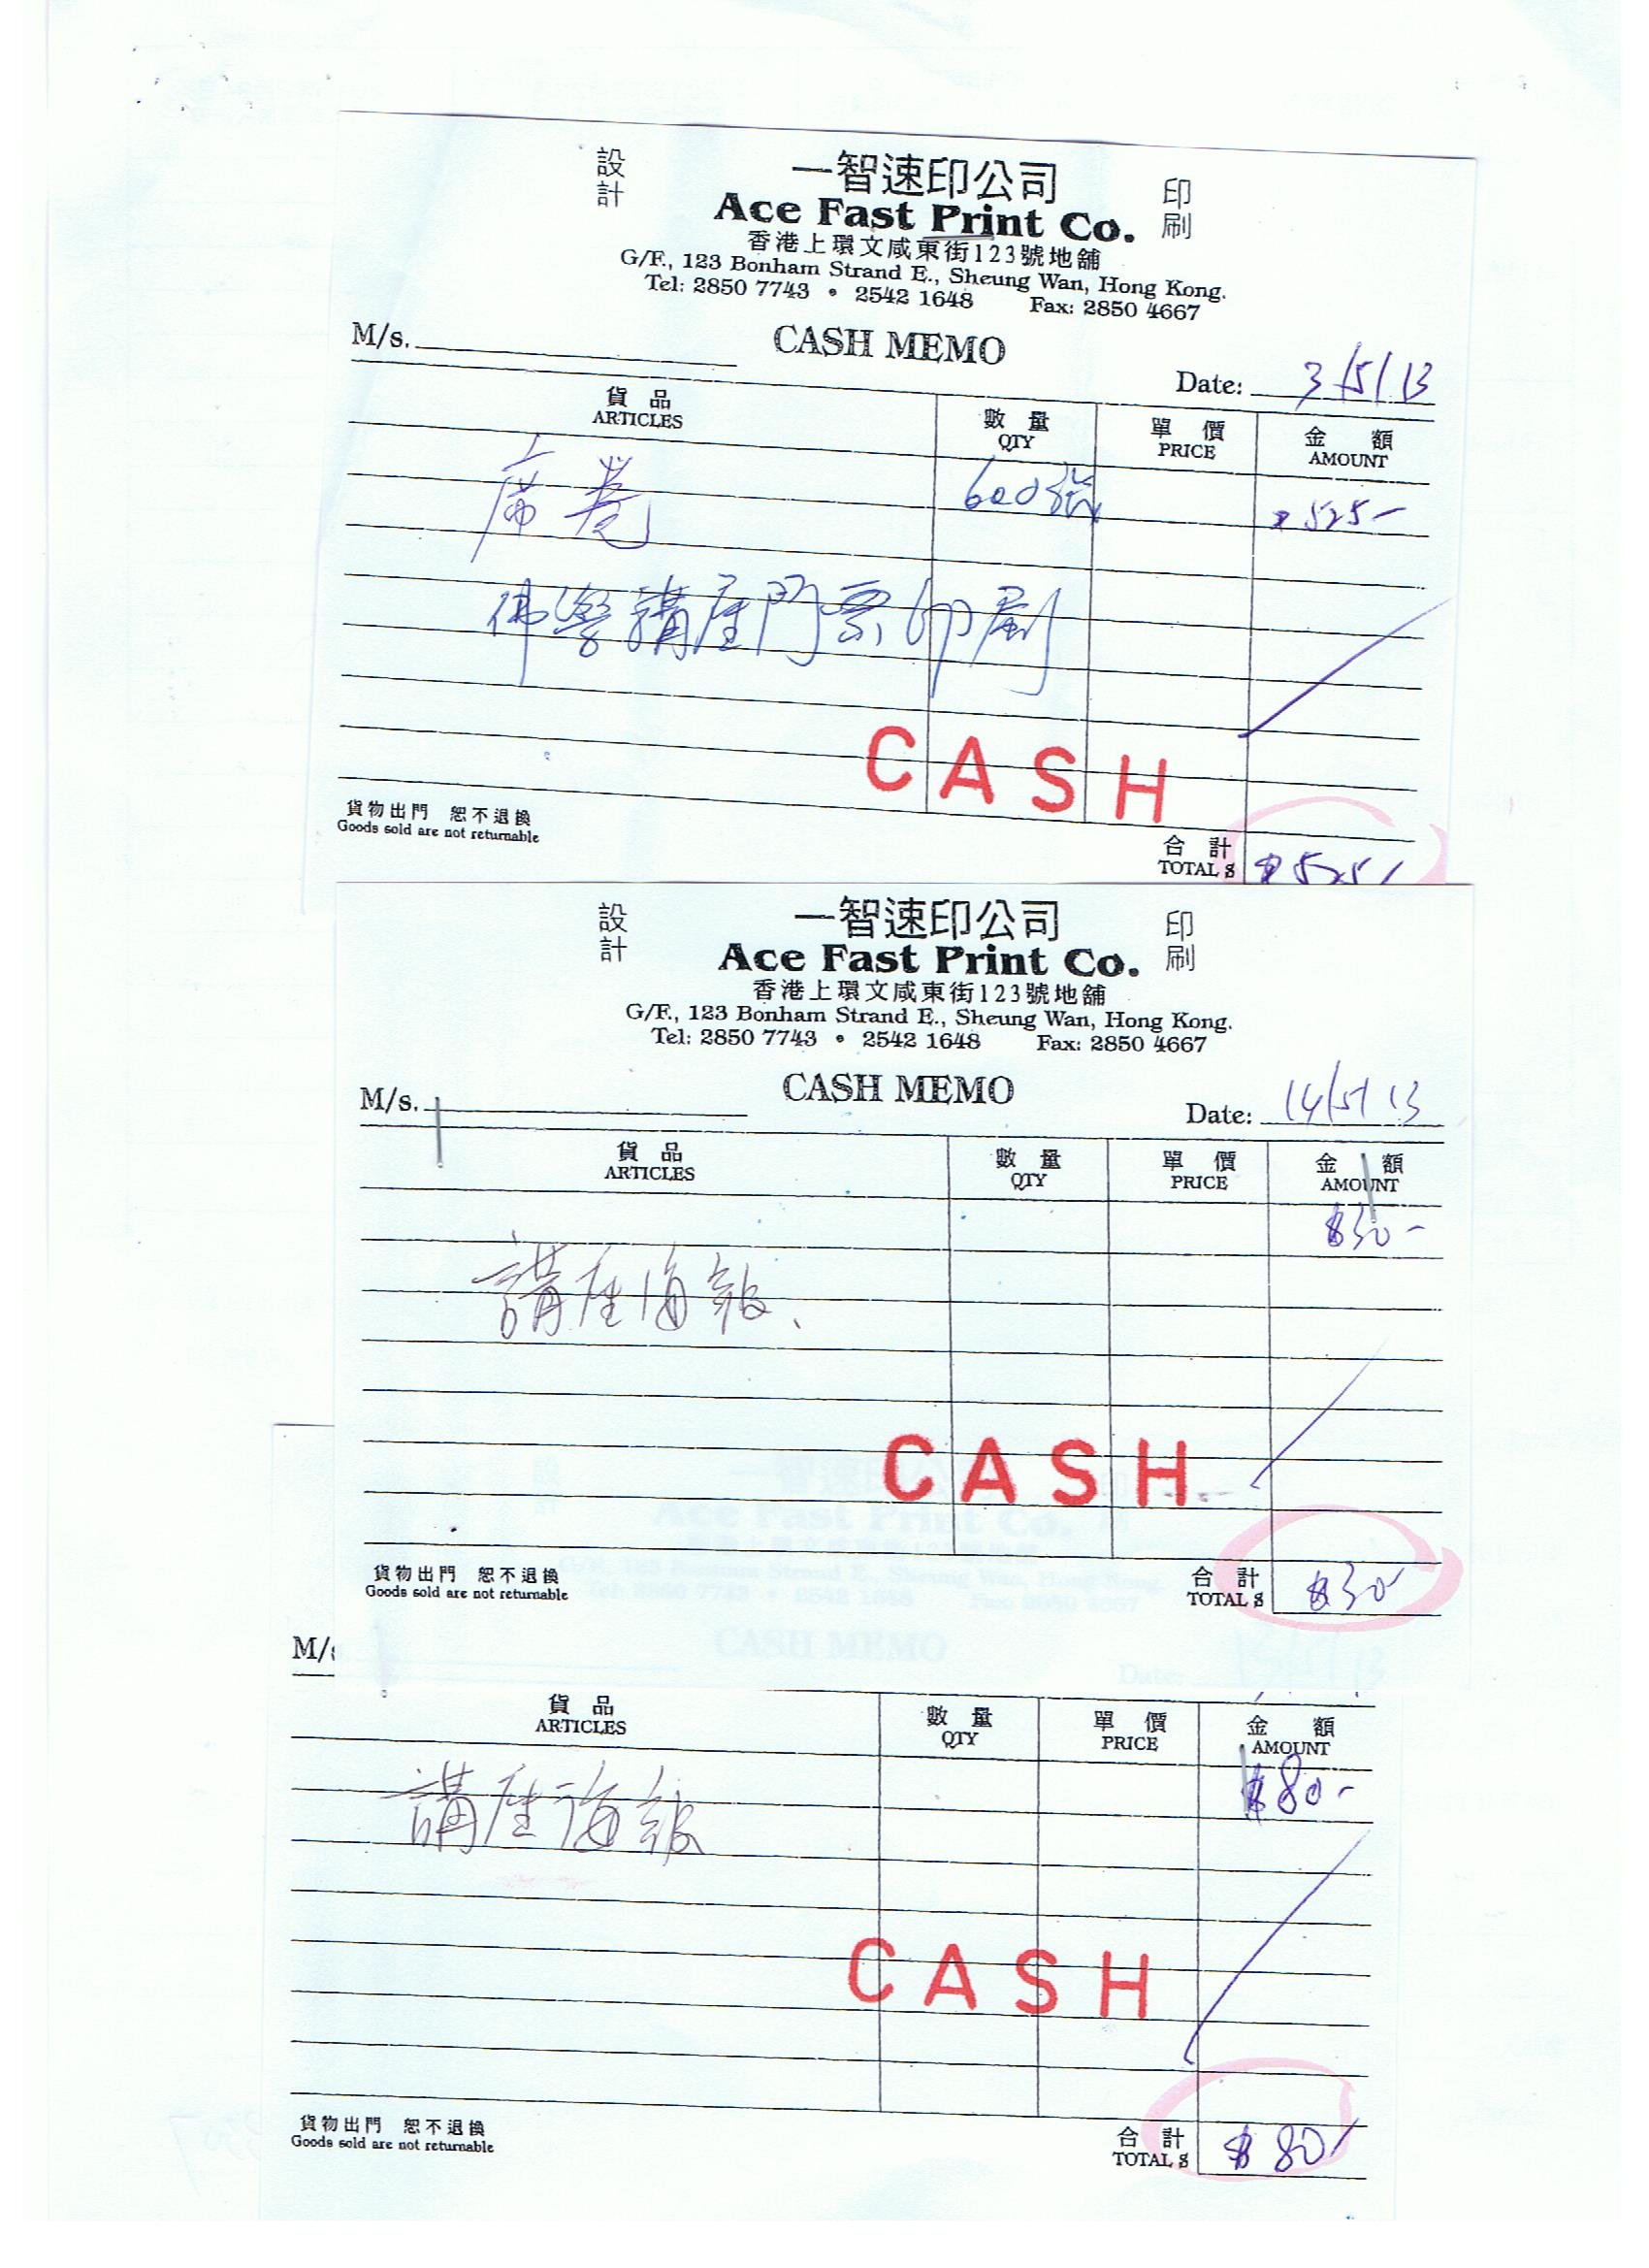 設計
一智速印公司
印刷
Ace Fast Print Co.
香港上環文咸東街123號地舖
G/F., 123 Bonham Strand E., Sheung Wan, Hong Kong.
Tel: 2850 7743 • 2542 1648 Fax: 2850 4667
M/s. CASH MEMO Date: 3/5/13
貨品 數量 單價 金額
ARTICLES QTY PRICE AMOUNT
席卷 600張 $525-
佛學講座門票印刷
CASH
貨物出門 恕不退換
Goods sold are not returnable
合計
TOTAL $ $525/
設計
一智速印公司
印刷
Ace Fast Print Co.
香港上環文咸東街123號地舖
G/F., 123 Bonham Strand E., Sheung Wan, Hong Kong.
Tel: 2850 7743 • 2542 1648 Fax: 2850 4667
M/s. CASH MEMO Date: 14/5/13
貨品 數量 單價 金額
ARTICLES QTY PRICE AMOUNT
$30-
講座海報、
CASH
貨物出門 恕不退換
Goods sold are not returnable
合計
TOTAL $ $30-
M/s
貨品 數量 單價 金額
ARTICLES QTY PRICE AMOUNT
講座海報 $80-
CASH
貨物出門 恕不退換
Goods sold are not returnable
合計
TOTAL $ $80/